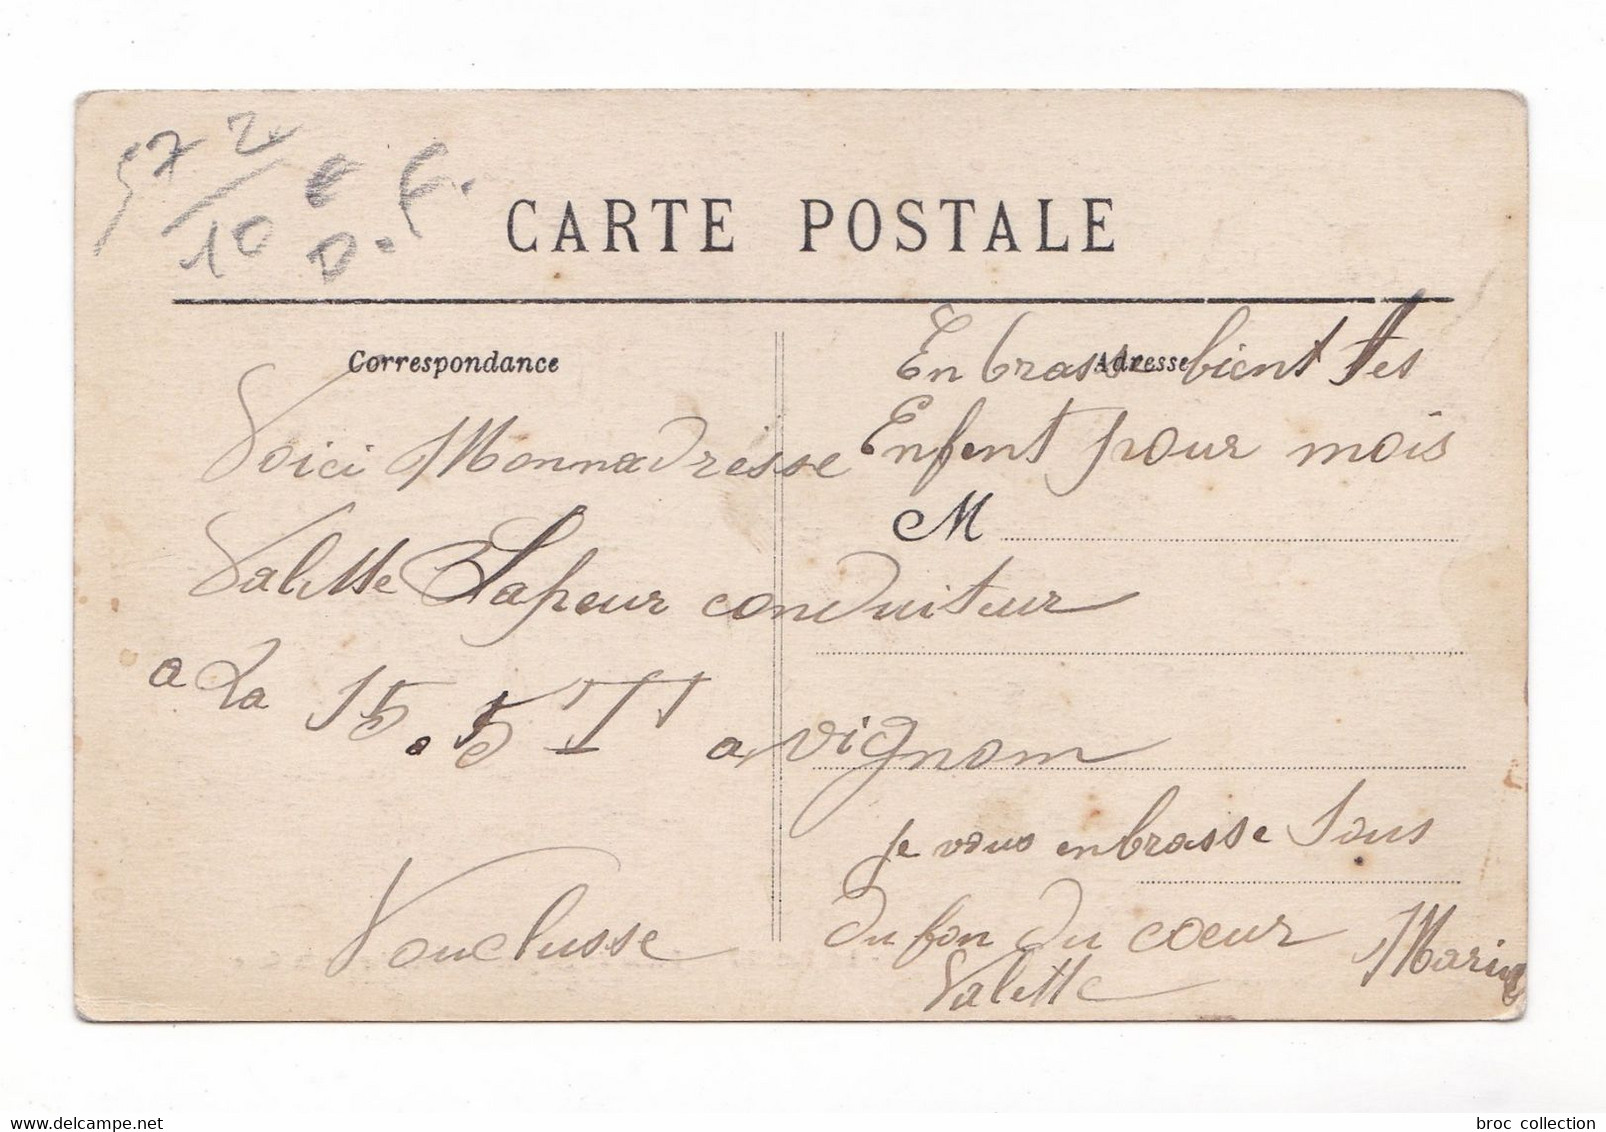 57 2/10 e D.F.
CARTE POSTALE
Correspondance
Adresse
Voici Monnadrésse
Valette Sapeur conduiteur
a La 15.5 TT avignom
Vouclusse
Enbrasse bient tes
Enfent pour mois
M
Je vous enbrasse Tous
du fon du coeur
Valette Marius
broc collection